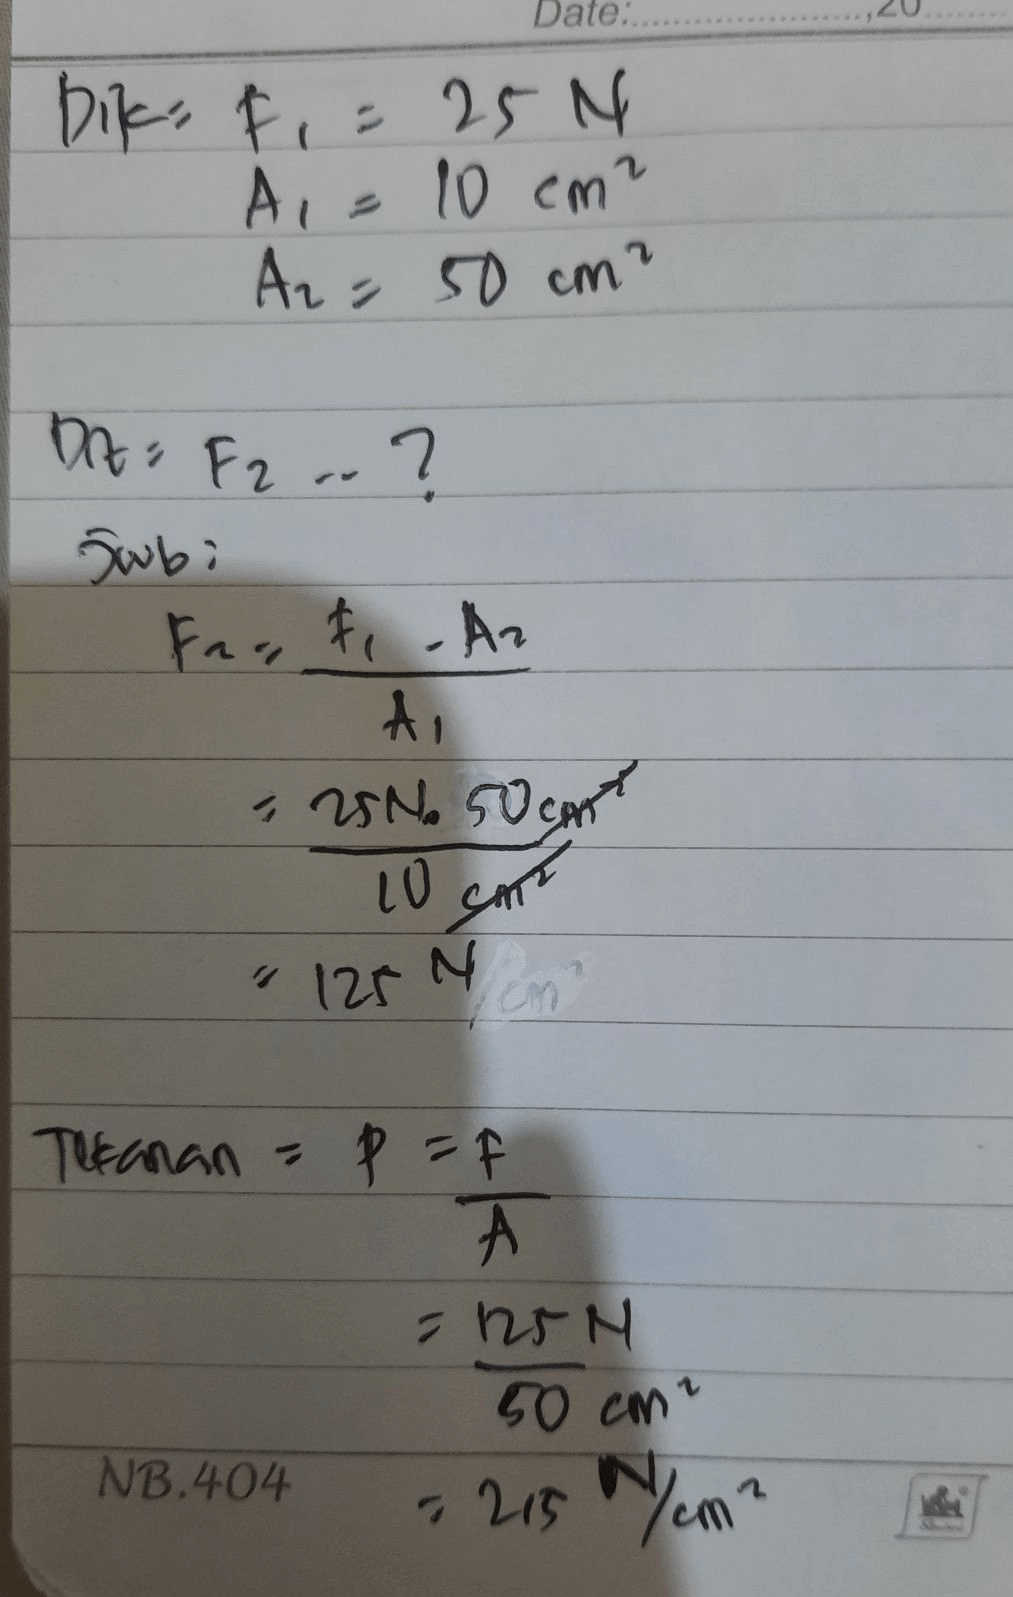 Date:....................,20........
Dik = F₁ = 25 N
A₁ = 10 cm²
A₂ = 50 cm²
Dit = F₂ ... ?
Jwb :
F₂ = F₁ . A₂
A₁
= 25 N . 50 cm²
10 cm²
= 125 N /cm²
Tekanan = P = F
A
= 125 N
50 cm²
= 2,5 N/cm²
NB.404